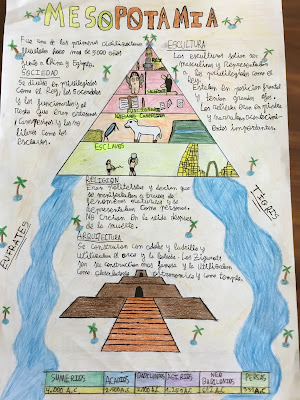 MESOPOTAMIA
Fue una de las primeras civilizaciones
hace mas de 5000 años
junto a China y Egipto.
SOCIEDAD
Se dividia en privilegiados
Como el Rey, los Sacerdotes
y los funcionarios y el
Resto que eran artesanos
campesinos y los no
libres como los
Esclavos.
ESCULTURA
Las esculturas solian ser
masculina y Representaban
a los privilegiados como el
rey.
Estaban en posicion frontal
y tenian grandes ojos.
Los relieves eran pintados
y narraban
entos importantes.
REY
SACERDOTES
FUNCIONARIOS
ARTESANOS CAMPESINOS
ESCLAVOS
RELIGIÓN
Eran Politeistas y decian que
se manifestaban a traves de
fenomenos naturales y se
representaban como personas.
NO creian en la vida despues
de la muerte.
EUFRATES
TIGRES
ARQUITECTURA
Se construian con adobe y ladrillo y
utilizaban el arco y la boveda. Los Zigurats
son su construccion mas famosa y la utilizaban
como observatorio astronomico y como templo.
SUMERIOS
ACADIOS
ASIRIOS
NEO
BABILONIOS
PERSAS
4000 A.C